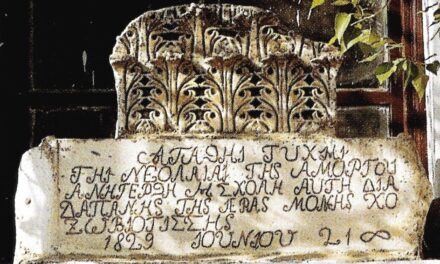 ΑΓΑΘΗΙ ΤΥΧΗΙ
ΤΗΙ ΝΕΟΛΑΙΑΙ ΤΗΣ ΑΜΟΡΓΟΥ
ΑΝΗΓΕΡΘΗ Η ΣΧΟΛΗ ΑΥΤΗ ΔΙΑ
ΔΑΠΑΝΗΣ ΤΗΣ ΙΕΡΑΣ ΜΟΝΗΣ ΧΟ
ΖΩΒΙΟΤΙΣΣΗΣ
1829 ΙΟΥΝΙΟΥ 21